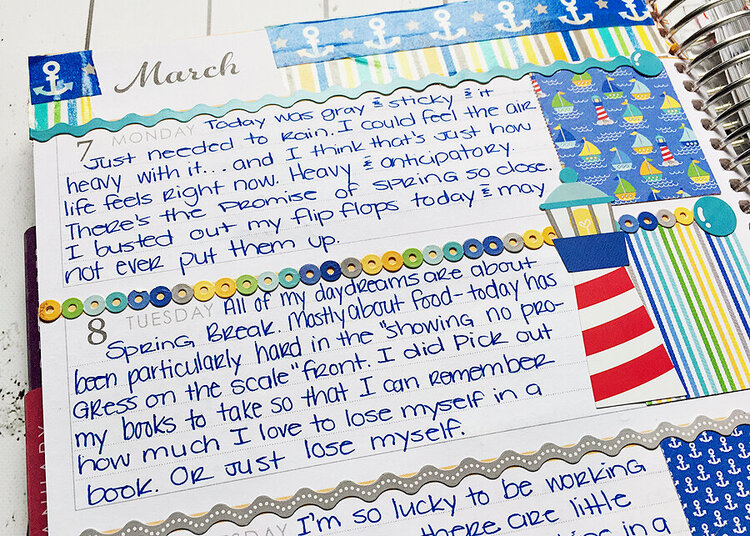 March
7 MONDAY Today was gray & sticky & it
Just needed to rain. I could feel the air
heavy with it... and I think that's just how
life feels right now. Heavy & anticipatory.
There's the promise of spring so close.
I busted out my flip flops today & may
not ever put them up.
8 TUESDAY All of my daydreams are about
Spring Break. Mostly about food - today has
been particularly hard in the "showing no pro-
gress on the scale" front. I did pick out
my books to take so that I can remember
how much I love to lose myself in a
book. Or just lose myself.
I'm so lucky to be working
there are little
in a
ANUARY